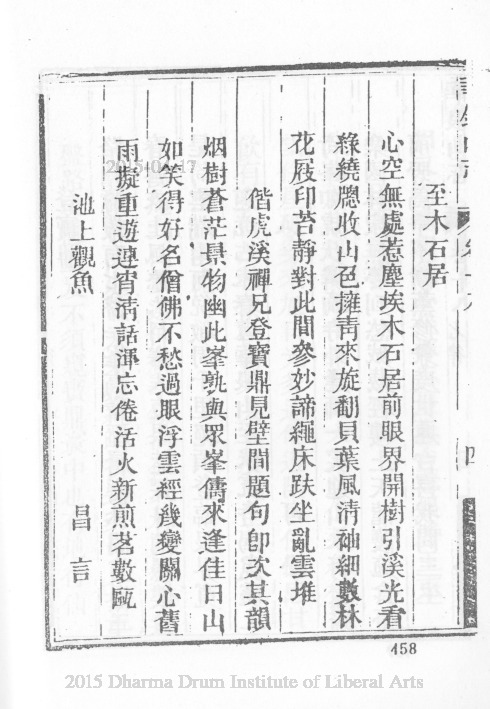 至木石居
心空無處惹塵埃木石居前眼界開樹引溪光看
綠繞牕收山色擁靑來旋翻貝葉風淸袖細數林
花屐印苔靜對此間參妙諦繩床趺坐亂雲堆
偕虎溪禪兄登寶鼎見壁間題句卽次其韻
烟樹蒼茫景物幽此峯孰與眾峯儔來逢佳日山
如笑得好名僧佛不愁過眼浮雲經幾變關心舊
雨擬重遊連宵淸話渾忘倦活火新煎茗數甌
池上觀魚 昌言
四
458
2015 Dharma Drum Institute of Liberal Arts